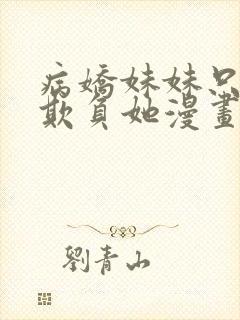 病嬌妹妹只
欺負她漫畫
劉青山